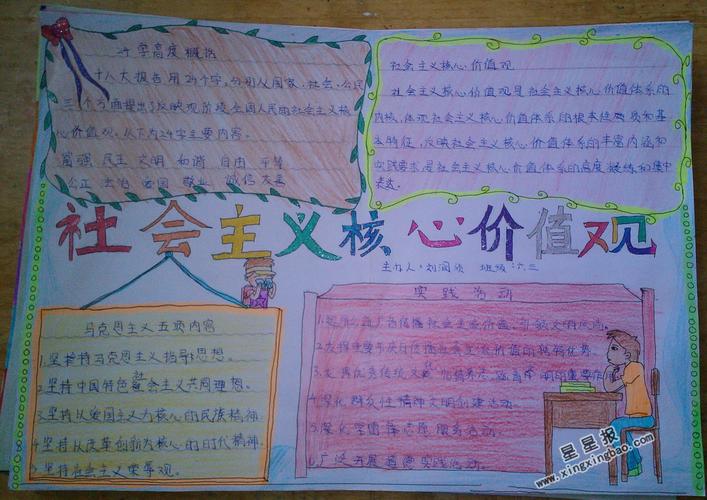 24字高度概括
十八大报告用24个字,分别从国家、社会、公民
三个方面提出了反映现阶段全国人民的社会主义核
心价值观。以下为24字主要内容。
富强 民主 文明 和谐 自由 平等
公正 法治 爱国 敬业 诚信 友善
社会主义核心价值观
社会主义核心价值观是社会主义核心价值体系的
内核,体现社会主义核心价值体系的根本性质和基
本特征,反映社会主义核心价值体系的丰富内涵和
实践要求,是社会主义核心价值体系的高度凝练和集中
表达。
社会主义核心价值观
主办人:刘润 班级:六三
马克思主义五项内容
1.坚持马克思主义指导思想。
2.坚持中国特色社会主义共同理想。
3.坚持以爱国主义为核心的民族精神
4.坚持以改革创新为核心的时代精神
5.坚持社会主义荣辱观。
实践活动
1.广告传播社会主义价值,引领文明
2.发挥重要节庆日传播社会主义价值的独特优势。
3.优秀传统文化
4.深化群众性精神文明创建活动。
5.深化学雷锋志愿服务活动。
6.广泛开展道德实践活动。
星星报
www.xingxingbao.com